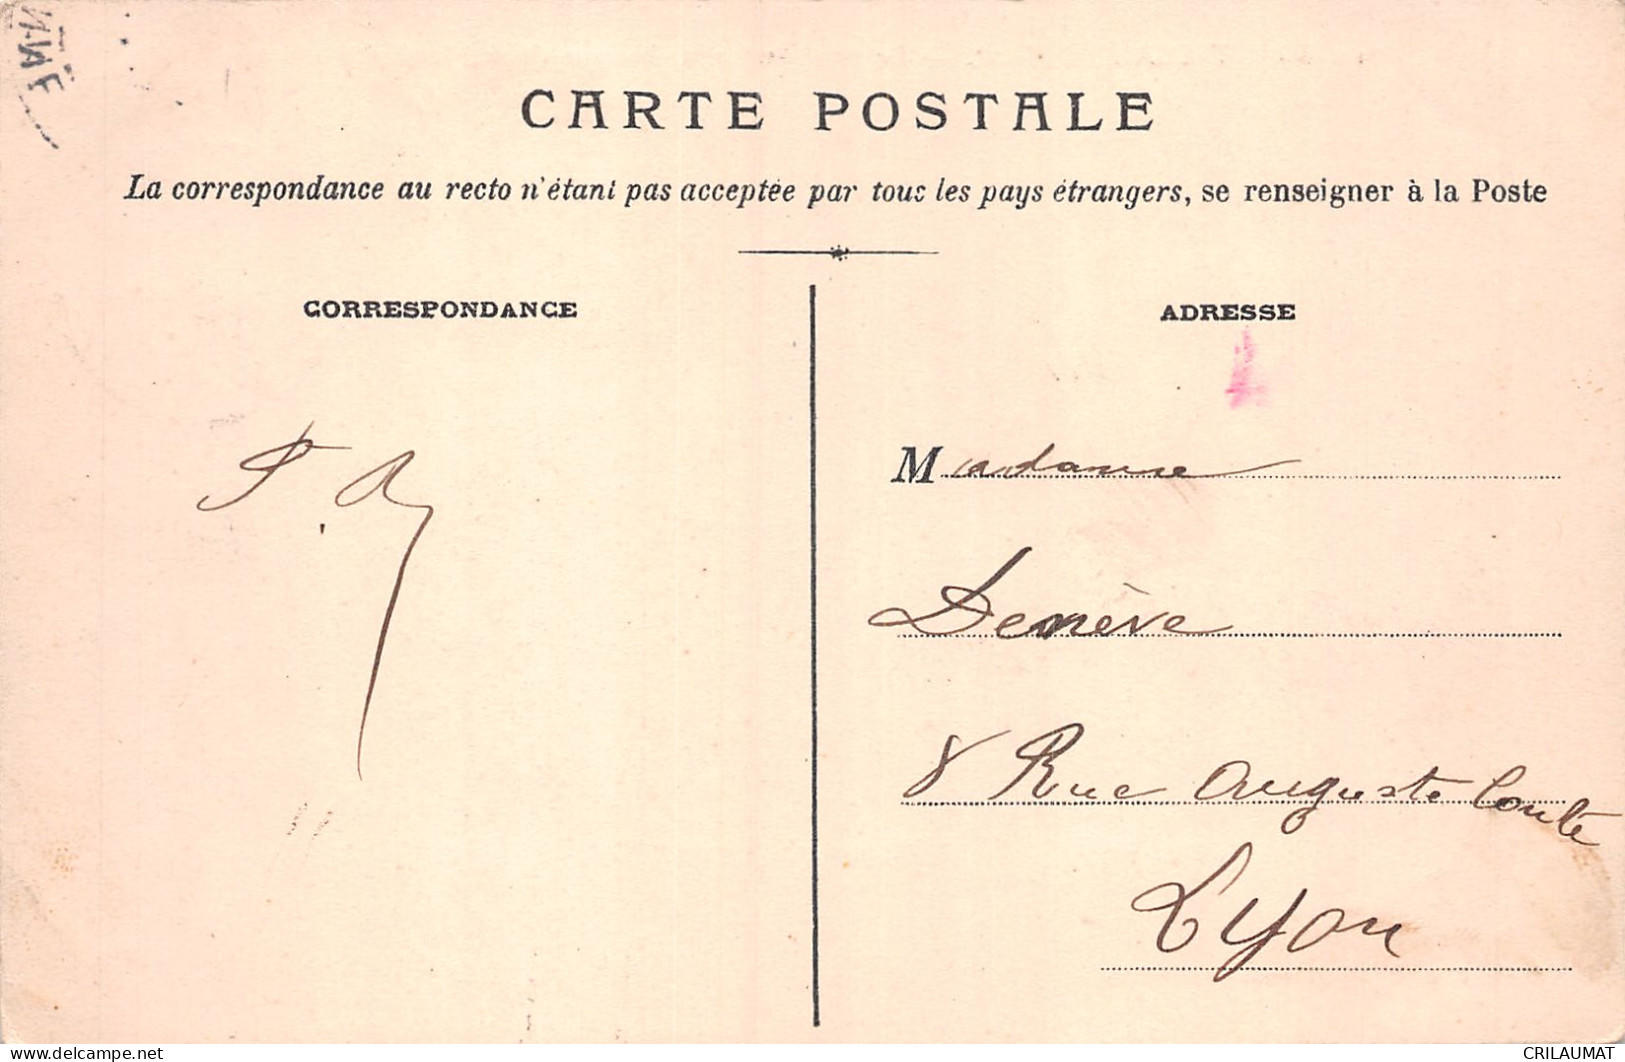 CARTE POSTALE
La correspondance au recto n'étant pas acceptée par tous les pays étrangers, se renseigner à la Poste
CORRESPONDANCE
ADRESSE
Madame
Denève
8 Rue Auguste Comte
Lyon
delcampe.net
CRILAUMAT